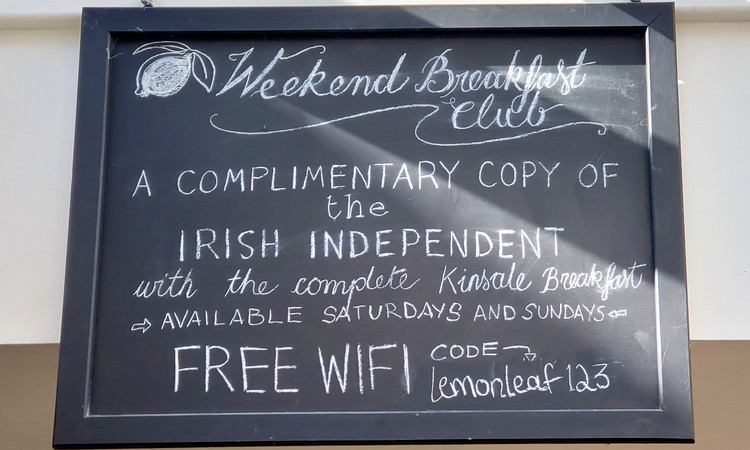 Weekend Breakfast
Club
A COMPLIMENTARY COPY OF
the
IRISH INDEPENDENT
with the complete Kinsale Breakfast
⇨ AVAILABLE SATURDAYS AND SUNDAYS ⇦
FREE WIFI CODE
lemonleaf123